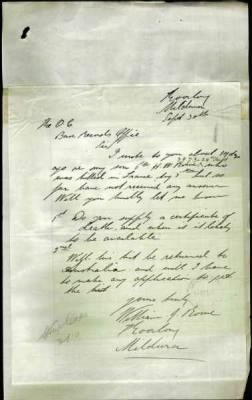 Koorlong
Mildura
Sept 30th
The O C
Base Records Office
Sir
I wrote to you about 14 days
ago re my son Pte W. W. Rowe who
was killed in France Aug but so
far have not received any answer
Will you kindly let me know
1st Do you supply a certificate of
death and when is it likely
to be available
2nd
Will his be returned to
Australia and will I have
to make any application to get
the
yours truly
William J. Rowe
Koorlong
Mildura